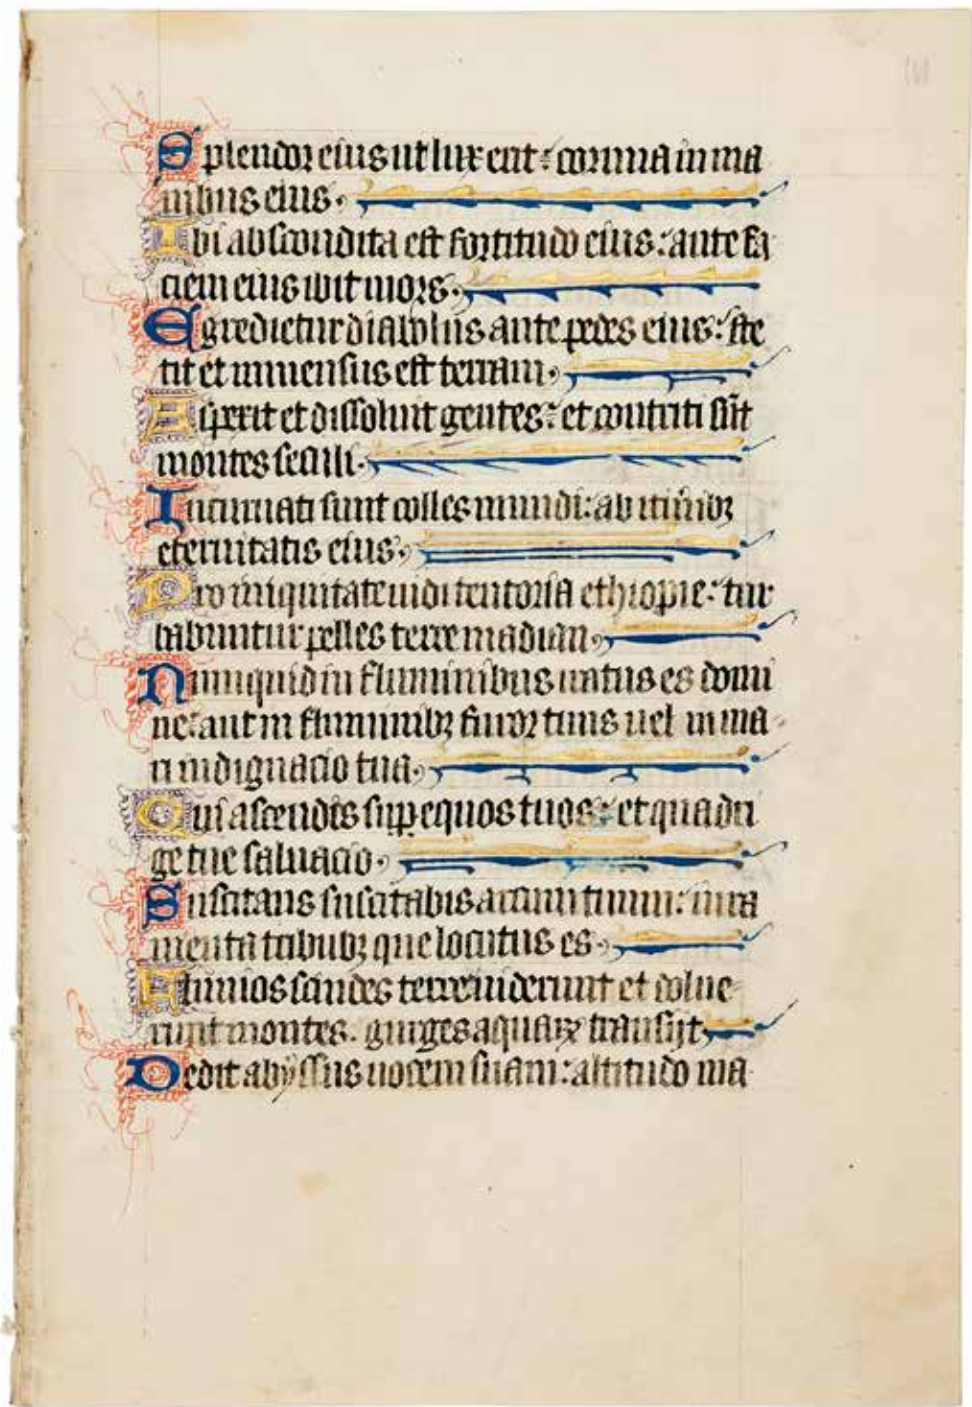 Splendor eius ut lux erit: cornua in ma
nibus eius.
Ibi abscondita est fortitudo eius: ante fa
ciem eius ibit mors.
Egredietur diabolus ante pedes eius: ste
tit et mensus est terram.
Aspexit et dissoluit gentes: et contriti sūt
montes seculi.
Incuruati sunt colles mundi: ab itinibꝫ
eternitatis eius.
Pro iniquitate uidi tentoria ethiopie: tur
babuntur pelles terre madian.
Numquid in fluminibus iratus es domi
ne: aut in fluminibꝫ furor tuus uel in ma
ri indignacio tua.
Qui ascendis suꝑ equos tuos: et quadri
ge tue saluacio.
Suscitans suscitabis arcum tuum: iura
menta tribubꝫ que locutus es.
fluuios scindes terre uiderunt et dolue
runt montes. gurges aquaꝝ transijt
Dedit abyssus uocem suam: altitudo ma